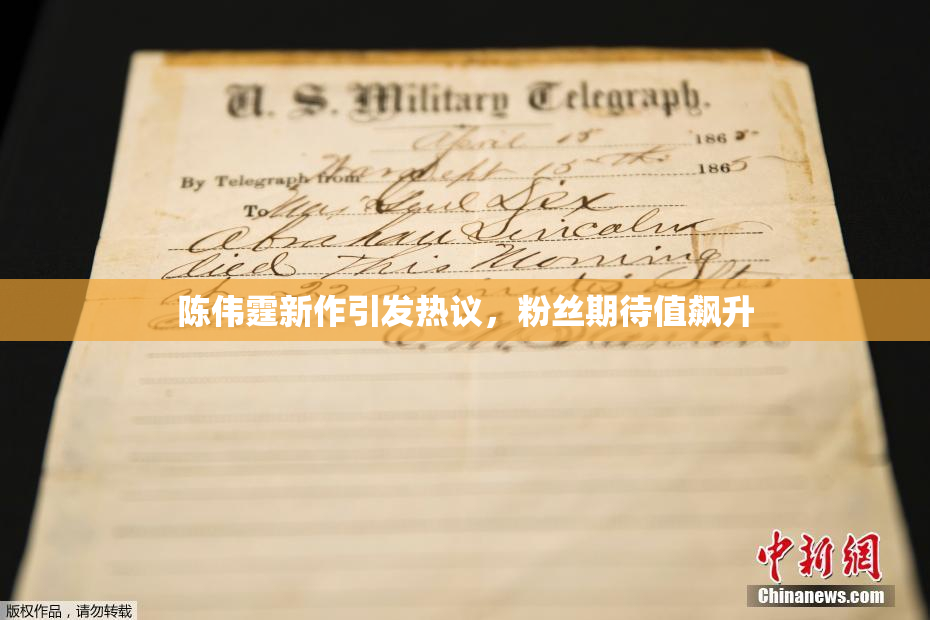 U. S. Military Telegraph.
April 15 1865
By Telegraph from War Dept 15th 1865
To Maj Genl Dix
Abraham Lincoln
died This Morning
at 22 minutes after
陈伟霆新作引发热议，粉丝期待值飙升
中新网
Chinanews.com
版权作品，请勿转载